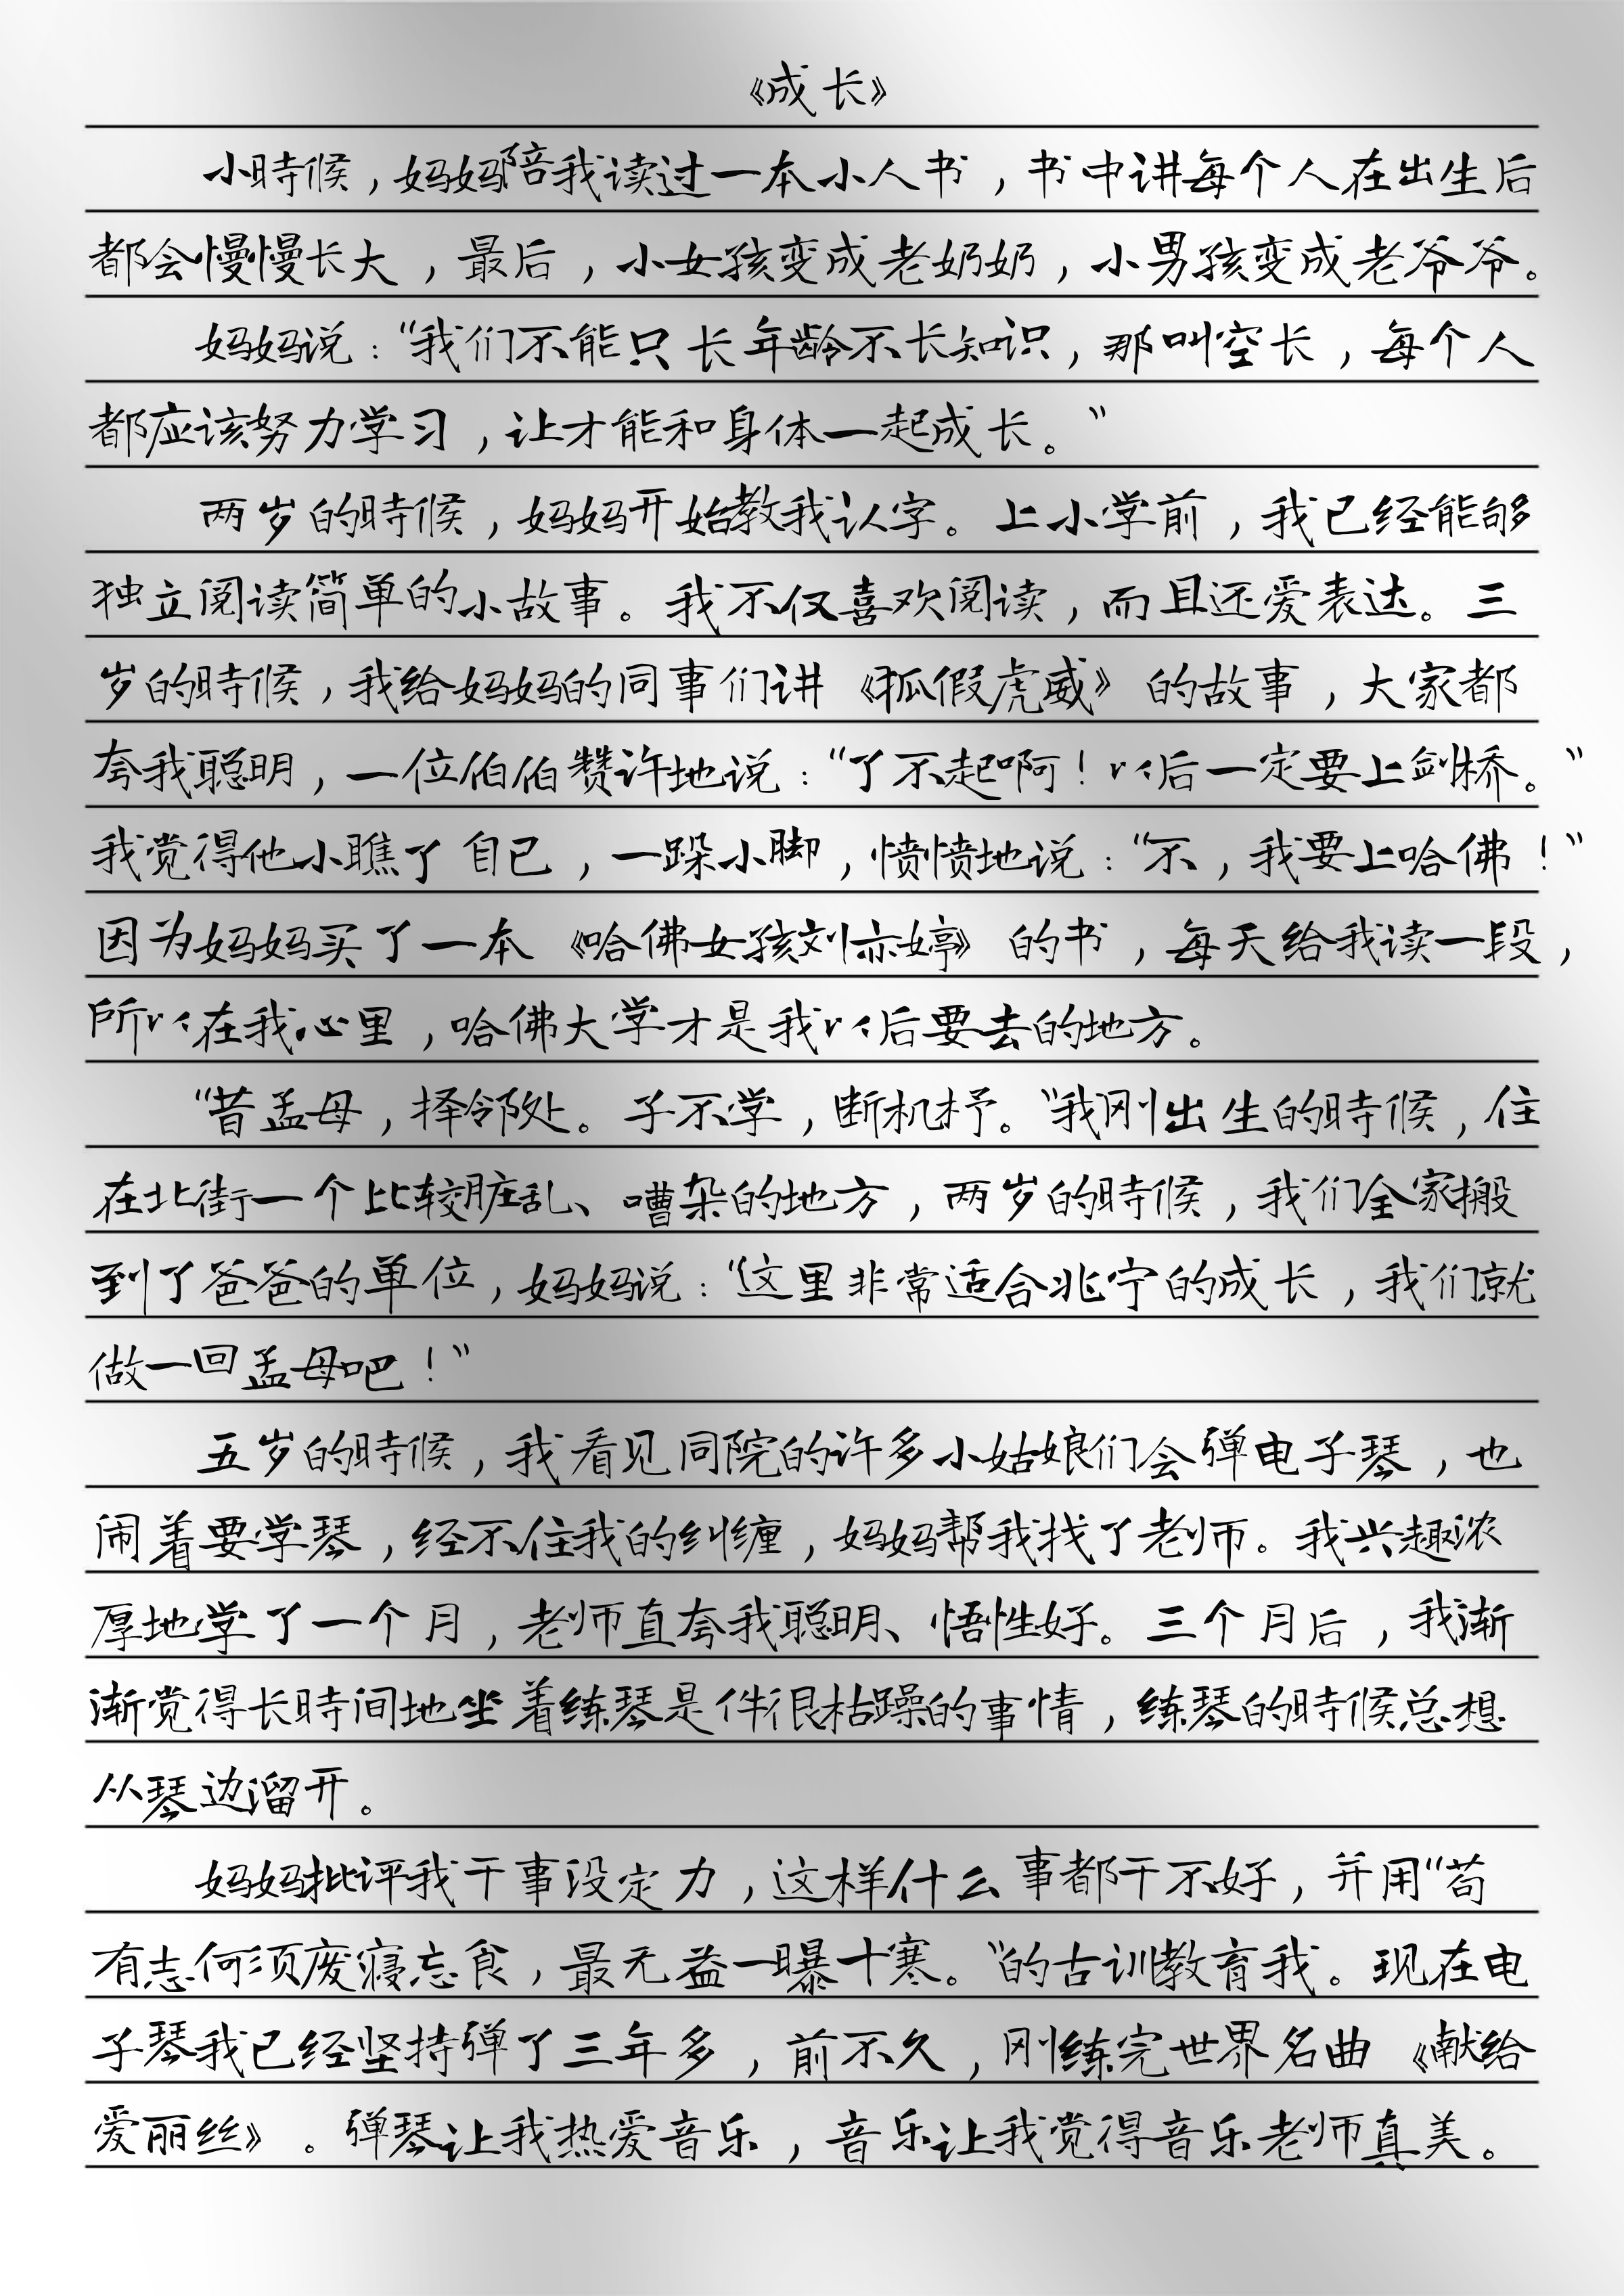 《成长》
小時候，妈妈陪我读过一本小人书，书中讲每个人在出生后
都会慢慢长大，最后，小女孩变成老奶奶，小男孩变成老爷爷。
妈妈说：“我们不能只长年龄不长知识，那叫空长，每个人
都应该努力学习，让才能和身体一起成长。”
两岁的時候，妈妈开始教我认字。上小学前，我已经能够
独立阅读简单的小故事。我不仅喜欢阅读，而且还爱表达。三
岁的時候，我给妈妈的同事们讲《狐假虎威》的故事，大家都
夸我聪明，一位伯伯赞许地说：“了不起啊！以后一定要上剑桥。”
我觉得他小瞧了自己，一跺小脚，愤愤地说：“不，我要上哈佛！”
因为妈妈买了一本《哈佛女孩刘亦婷》的书，每天给我读一段，
所以在我心里，哈佛大学才是我以后要去的地方。
“昔孟母，择邻处。子不学，断机杼。”我刚出生的時候，住
在北街一个比较脏乱、嘈杂的地方，两岁的時候，我们全家搬
到了爸爸的单位，妈妈说：“这里非常适合兆宁的成长，我们就
做一回孟母吧！”
五岁的時候，我看见同院的许多小姑娘们会弹电子琴，也
闹着要学琴，经不住我的纠缠，妈妈帮我找了老师。我兴趣浓
厚地学了一个月，老师直夸我聪明、悟性好。三个月后，我渐
渐觉得长時间地坐着练琴是件很枯躁的事情，练琴的時候总想
从琴边溜开。
妈妈批评我干事没定力，这样什么事都干不好，并用“苟
有志何须废寝忘食，最无益一曝十寒。”的古训教育我。现在电
子琴我已经坚持弹了三年多，前不久，刚练完世界名曲《献给
爱丽丝》。弹琴让我热爱音乐，音乐让我觉得音乐老师真美。